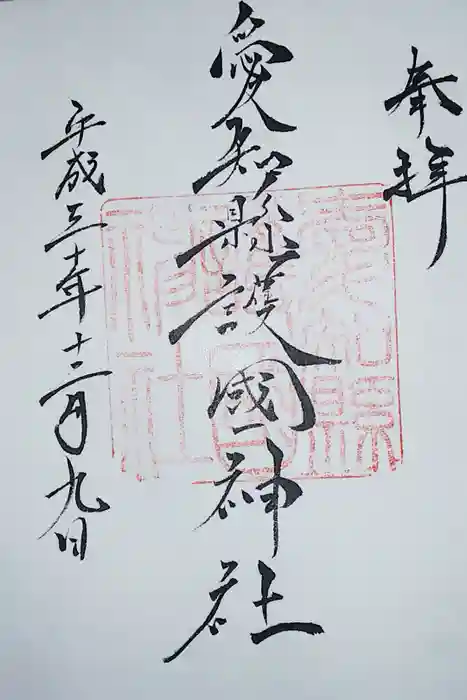 奉拝
愛知縣護國神社
平成三十年十二月九日
愛知縣
護國
神社